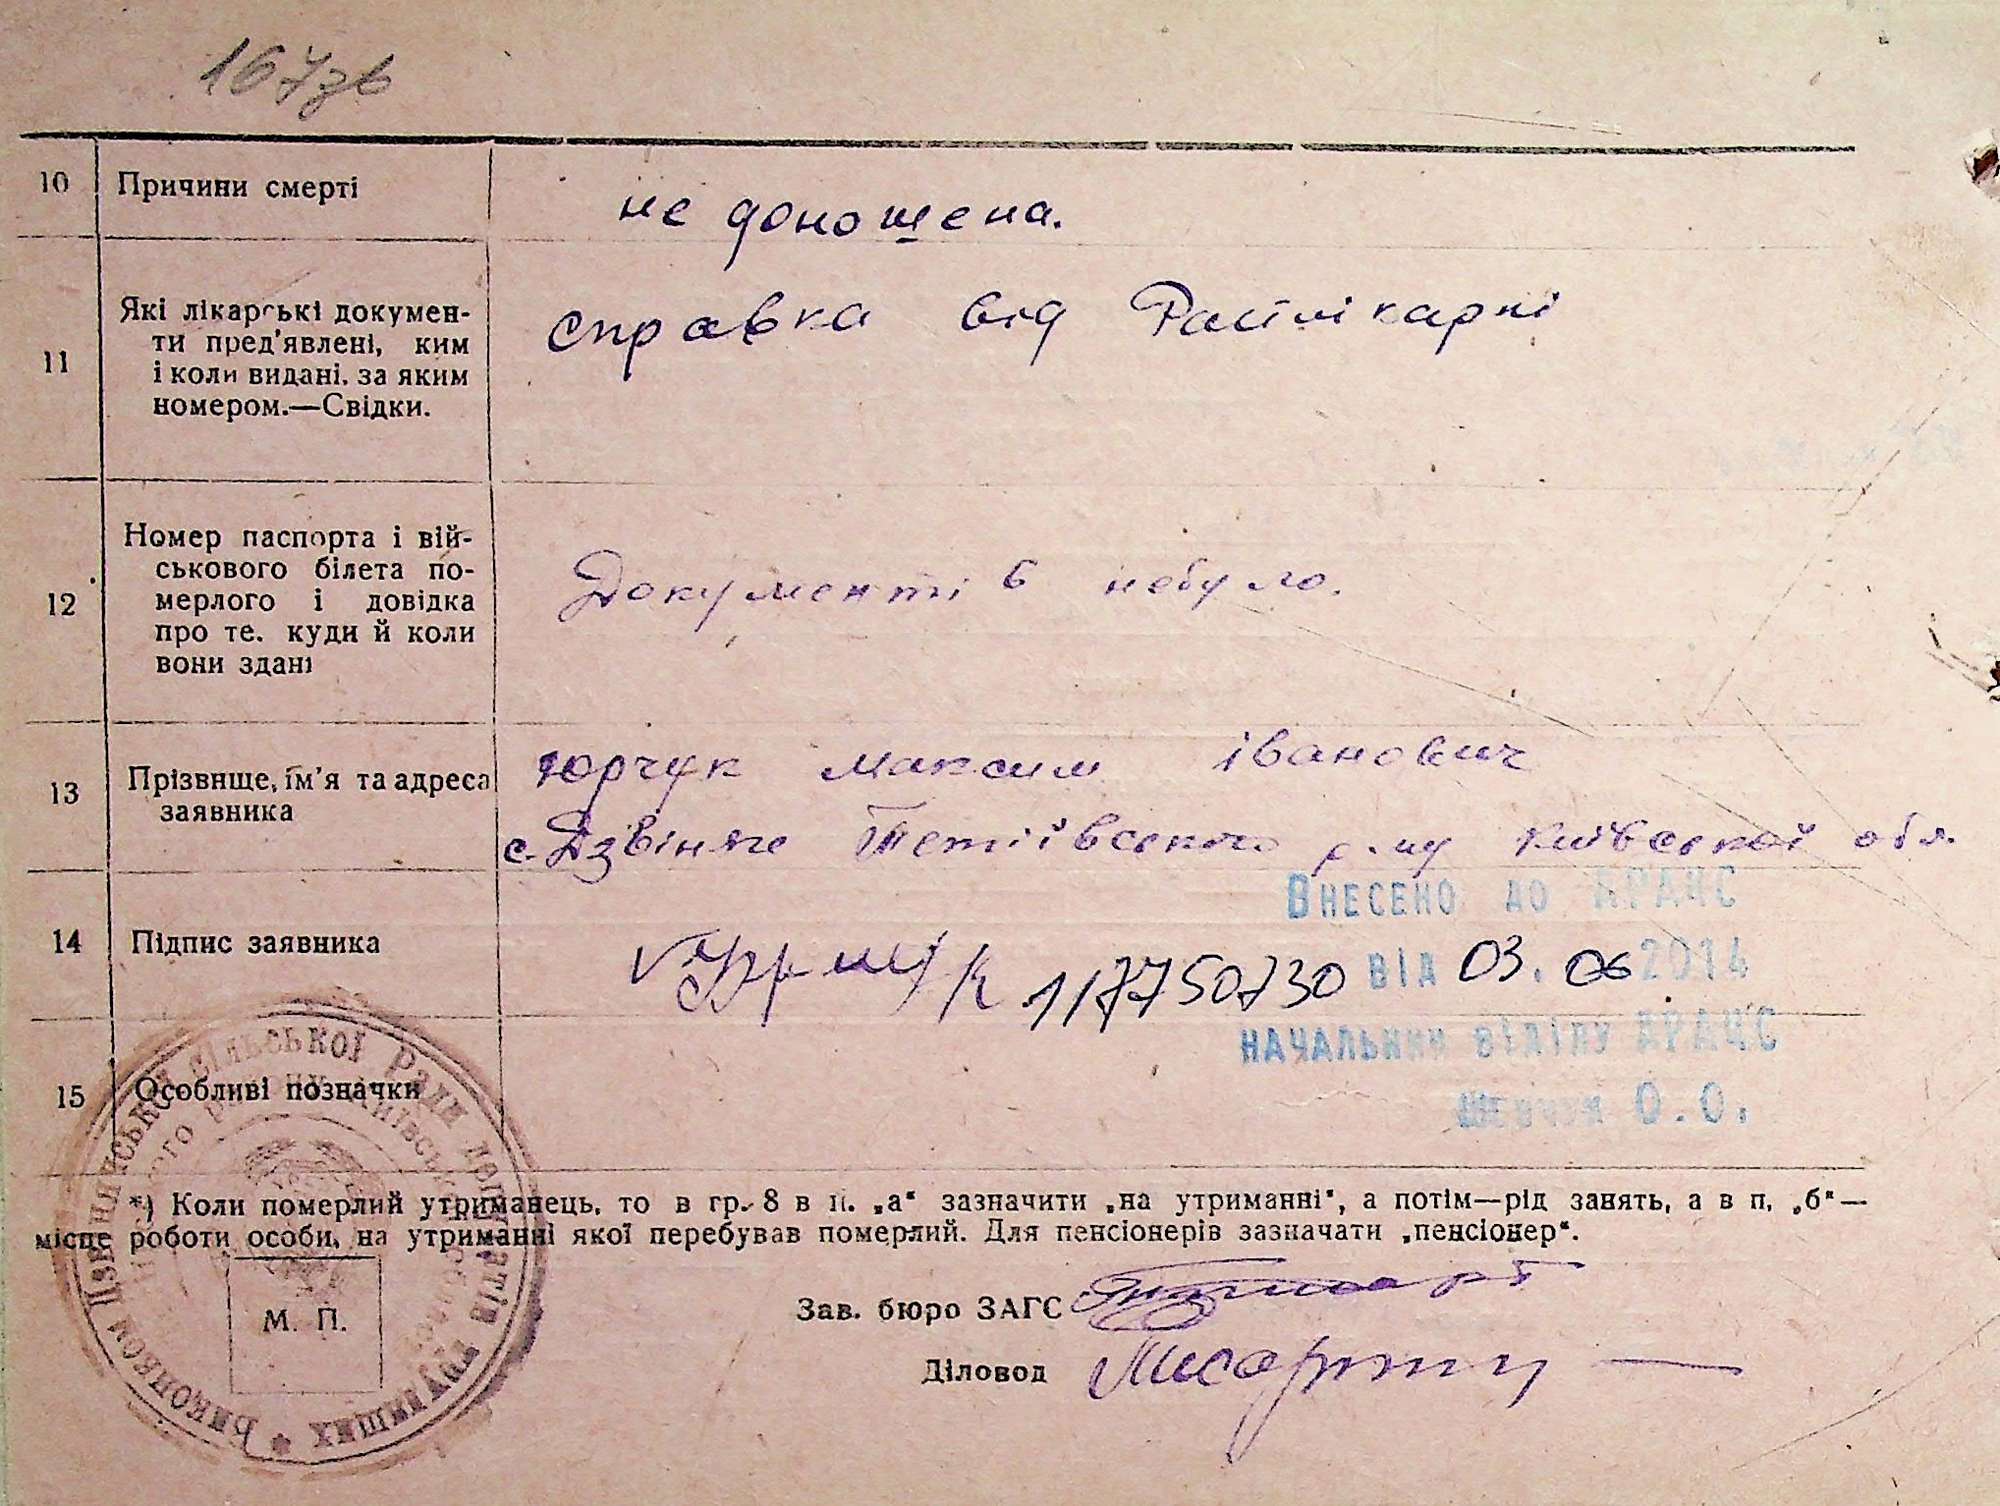 167зв
10 Причини смерті не доношена.
11 Які лікарські докумен-
ти пред'явлені, ким
і коли видані, за яким
номером.—Свідки.
справка від Райлікарні
12 Номер паспорта і вій-
ськового білета по-
мерлого і довідка
про те, куди й коли
вони здані
Документів небуло.
13 Прізвище, ім'я та адреса
заявника
Юрчук максим іванович
с. Дзвіняче Тетіївського р-ну Київської обл.
14 Підпис заявника
117750730
Внесено до АРАЦС
від 03.06 2014
начальник відділу АРАЦС
Шевчук О.О.
15 Особливі позначки
*) Коли померлий утриманець, то в гр. 8 в п. „а" зазначити „на утриманні", а потім—рід занять, а в п. „б"—
місце роботи особи, на утриманні якої перебував померлий. Для пенсіонерів зазначати „пенсіонер".
М. П.
Зав. бюро ЗАГС
Діловод
Виконком Дзвіняцької сільської Ради депутатів трудящих